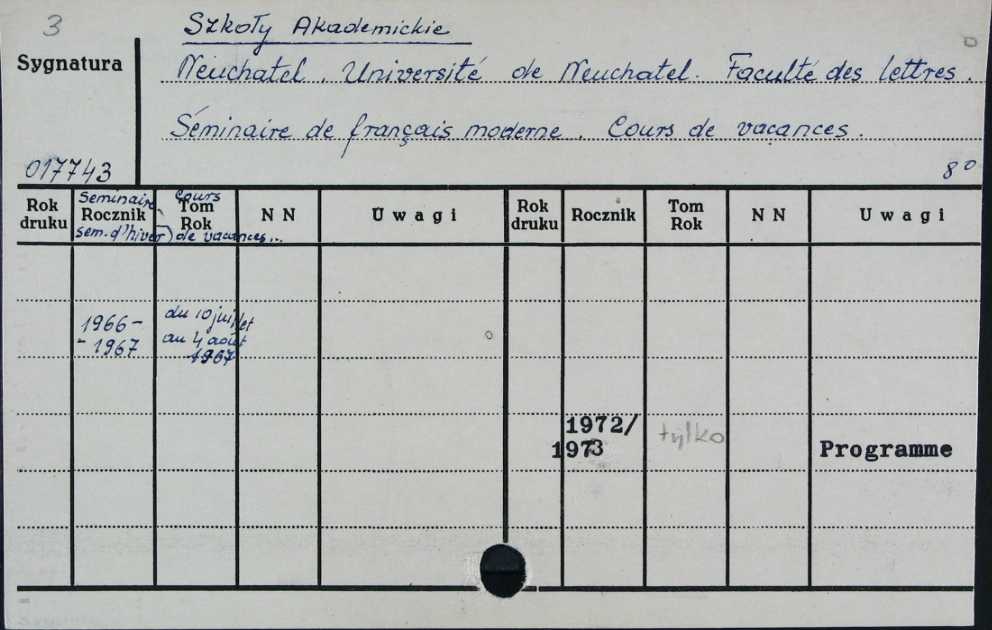 3
Szkoły Akademickie
Sygnatura
Neuchatel. Université de Neuchatel. Faculté des lettres.
Séminaire de français moderne. Cours de vacances.
017743
8°
Rok druku
Seminaire
Rocznik
sem. d'hiver)
Cours
Tom
Rok
de vacances...
N N
Uwagi
Rok druku
Rocznik
Tom Rok
N N
Uwagi
1966-
-1967
du 10 juillet
au 4 août
1967
1972/
1973
tylko
Programme